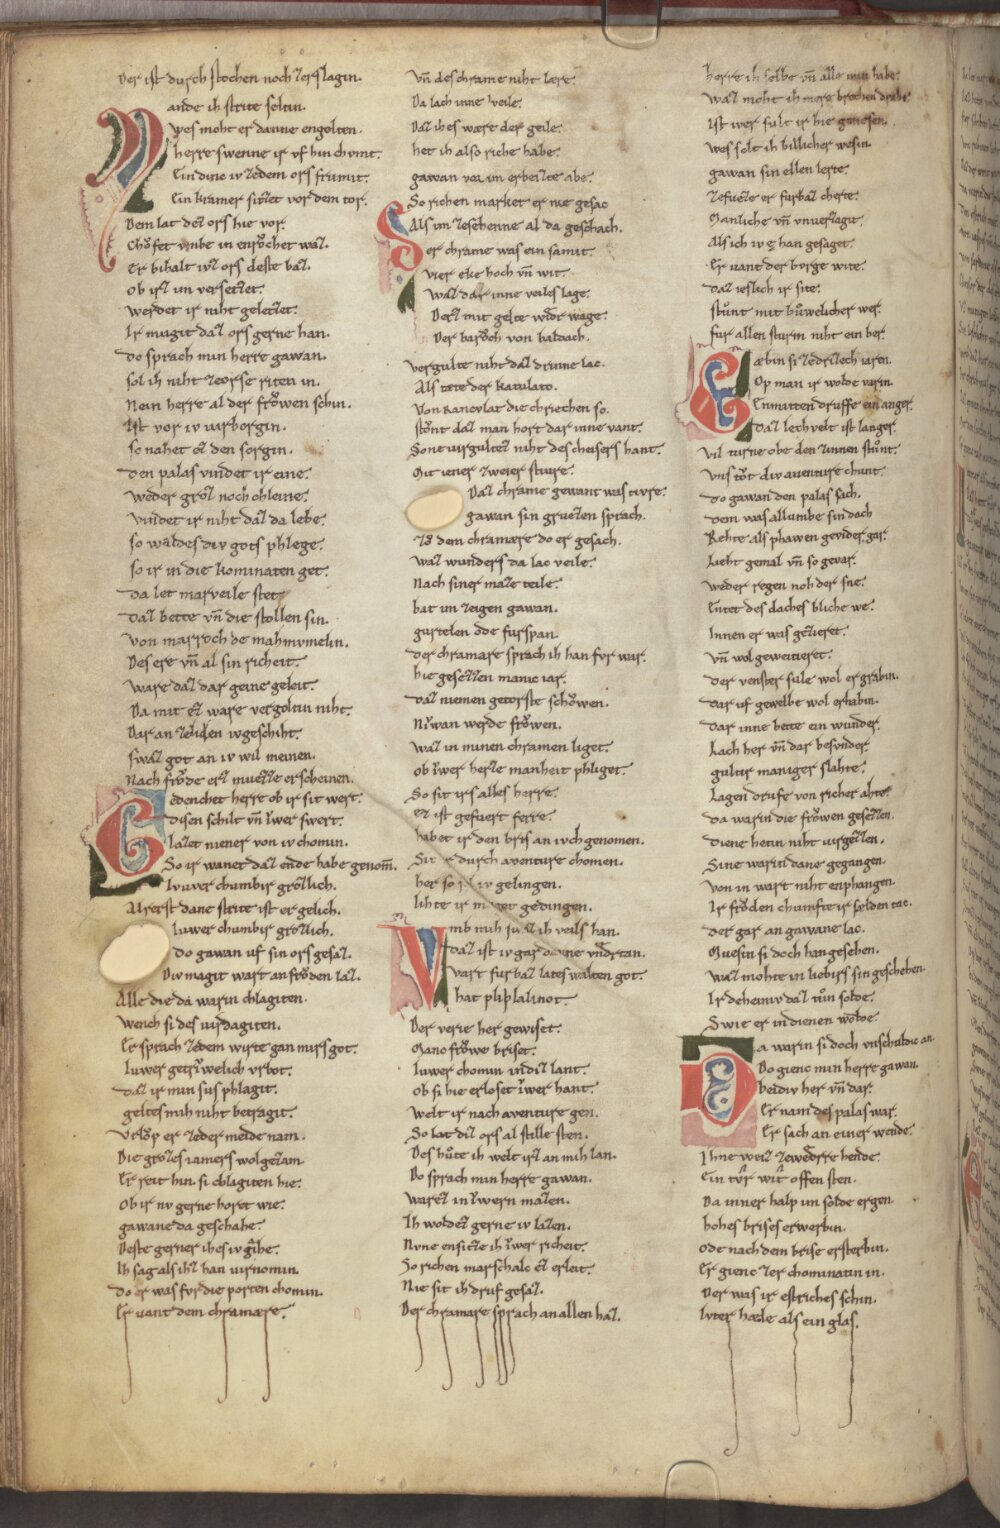 Der ist durch stochen noch zerslagin.
ande ih strite seltin.
wes moht er danne engolten.
herre swenne ir vf hin chvmt.
Ein dinc iv zedem ors frumit.
Ein kramer sizzet vor dem tor.
Dem lat dez ors hie vor.
Chŏfet vmbe in enrŏchet waz.
Er bihalt iwz ors deste baz.
ob irz im versetzet.
werdet ir niht geletzet.
Ir mugit daz ors gerne han.
Do sprach min herre gawan.
sol ih niht zeorse riten in.
Nein herre al der frŏwen schin.
Ist vor iv virborgin.
so nahet ez den sorgin.
Den palas vindet ir eine.
weder groz noch chleine.
vindet ir niht daz da lebe.
so waldes div gots phlege.
so ir in die kominaten get.
Da let marveile stet.
Daz bette vn̄ die stollen sin.
Von marroch de mahmvmelin.
Des ere vn̄ al sin richeit.
ware daz dar geine geleit.
Da mit ez ware vergoltin niht.
Dar an zeliden iv geschiht.
swaz got an iv wil meinen.
Nach frŏde erz muezze erscheinen.
Gedenchet herre ob ir sit wert.
disen schilt vn̄ ïwer swert.
lazet niener von iv chomin.
So ir wanet daz ende habe genom̄.
Iwer chumbir grozlich.
Alrerst dane strite ist er gelich.
Iuwer chumbir grozlich.
do gawan uf sin ors gesaz.
Div magit wart an frŏden laz.
Alle die da warin chlagiten.
wench si des virdagiten.
Er sprach zedem wirte gan mirs got.
Iuwer getrïwelich vrbot.
daz ir min sus phlagit.
geltes mih niht betragit.
Vrlŏp er zeder meide nam.
Die grozes iamers wol gezam
Er reit hin si chlagiten hie.
Ob ir nv gerne horet wie.
gawane da geschahe.
Deste gerner ih es iv gihe.
Ih sag als ihz han virnomin.
Do er was for die porten chomin.
Er vant dem chramære.
Vn̄ des chrame niht lære.
Da lach inne veile.
Daz ih es wære der geile.
het ih also riche habe.
gawan vor im erbeizte abe.
So richen market er nie gesac
Als im zesehenne al da geschach.
er chrame was ein samit.
vier eke hoch vn̄ wit.
waz dar inne veiles lage.
Derz mit gelte wider wage.
Der barŏch von baldach.
vergulte niht daz drinne lac.
Als tæte der katulato.
Von Ranculat die chriechen so.
stŏnt daz man hort dar inne vant.
Sone virgultez niht des cheisers hant.
Mit iener zweier stiure.
Daz chrame gewant was tivre.
gawan sin gruezen sprach.
Zŏ dem chramære do er gesach.
waz wunders da lac veile.
Nach siner maze teile.
bat im zeigen gawan.
gurtelen ode furspan.
Der chramare sprach ih han for war.
hie gesezzen manic iar.
daz niemen getorste schŏwen.
Niwan werde frŏwen.
waz in minen chramen liget.
ob ïwer herze manheit phliget.
So sit irs alles herre.
ez ist gefuert ferre.
habet ir den bris an ivch genomen.
Sit durch aventure chomen.
her sol iv gelingen.
lihte ir gedingen.
Vmb mih swaz ih veils han.
daz ist iv gar danne vndertan.
vart furbaz lates walten got.
hat pliplalinot.
Der verie her gewiset.
Mano frŏwe briset.
Iuwer chomin in diz lant.
ob si hie erloset ïwer hant.
welt ir nach aventure gen.
So lat diz ors al stille sten.
Des hŭte ih welt irz an mih lan.
Do sprach min herre gawan.
warez in ïwern mazen.
Ih woldez gerne iv lazen.
Nvne ensizze ih ïwer richeit.
So richen marschalc ez erleit.
Nie sit ih druf gesaz.
Der chramare sprach an allen haz.
herre ih selbe vn̄ alle min habe.
waz moht ih mere brechen drabe.
Ist iwer sult ir hie genesen.
wes solt ih billicher wesin.
gawan sin ellen lerte.
zefuezze er furbaz cherte.
Manliche vn̄ vnverzagit.
Als ich iv e han gesaget.
Er vant der borge wite.
daz ieslich ir site.
stŭnt mit bŭwelicher wer.
fur allen sturm niht ein ber.
Gæbin si zedrizech iaren.
Op man ir wolde varin.
Enmitten druffe ein anger.
Daz lechvelt ist langer.
vil turne obe den zinnen stŭnt.
vns tŏt div aventure chunt.
Do gawan den palas sach.
Dem was allumbe sin dach
Rehte als phawen gevider gar.
Lieht gemal vn̄ so gevar.
weder regen noh der sne.
Entet des daches bliche we.
Innen er was gezieret.
Vn̄ wol gewveitieret.
der venster sule wol ergrabin.
Dar uf gewelbe wol erhabin.
Dar inne bette ein wunder.
Lach her vn̄ dar besvnder.
gultir maniger slahte.
Lagen drufe von richer ahte.
Da warin die frŏwen gesezzen.
Diene hetin niht virgezzen.
Sine warin dane gegangen.
Von in wart niht enphangen.
Ir frŏden chumfte ir selden tac.
Der gar an gawane lac.
Muesin si doch han gesehen.
waz mohte in liebirs sin geschehen.
Ir deheiniv daz tŭn solde.
Swie er in dienen wolde.
Da warin si doch vnschuldic an.
Do gienc min herre gawan.
beidiv her vn̄ dar.
Er nam des palas war.
Er sach an einer wende.
Ihne weiz zewederre hende.
Ein tŭr wit offen sten.
Da inner halp im solde ergen.
hohes brises erwerbin.
ode nach dem brise ersterbin.
Er gienc zer chominatin in.
Der was ir estriches schin.
lvter hæle als ein glas.